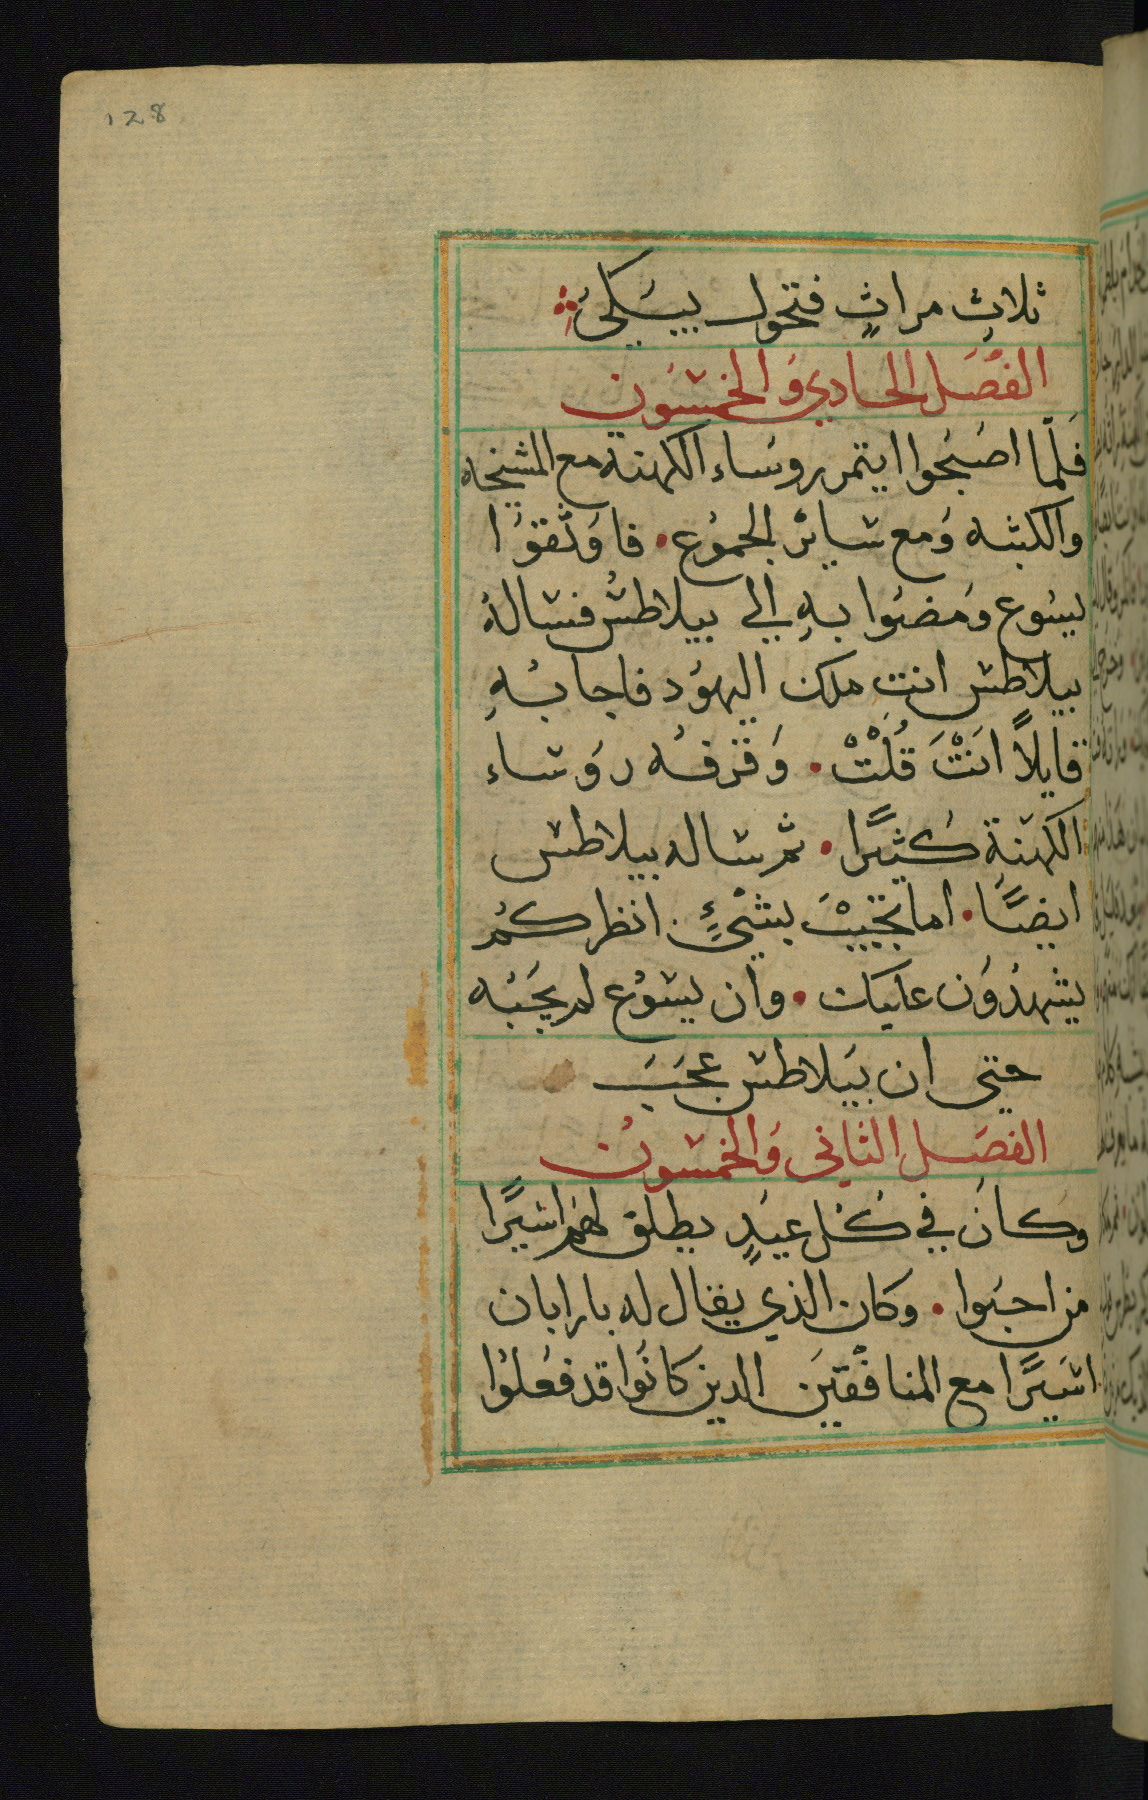 128
ثلاثِ مراثٍ فتحول يبسَكيُ
الفصَل الحادي وَالخمسَون
فَلمّا اصَبَحوا ايتمر روسَاء الكهنة مع المشيخه
والكتبه وَمع سايرْ الجموُع • فاوَثقوُا
يسَوع وَمضوا بهِ الي بيلاطسُ فسالهُ
بيلاطس انت ملك اليهوُد فاجابهُ
قايلاً انَتْ قُلْتْ • وَقرفهُ روَساء
الكهنَةِ كثيرًا • ثم ساله بيلاطس
ايضًا • اما تجيبْ بشيْءٍ انظر كمُ
يشهدُوَن عليك • وان يسوُع لم يجَبُه
حتي ان بيَلاطس عجَبَ
الفصَل الثاني وَالخمسوُن
وكانَ في كُل عيدٍ يطلق لهم اسيرًا
من احبَوا • وكان الذي يقال له بارابان
اسَيرًا مع المنافقينَ الدين كانَوُا قد فعَلوُا